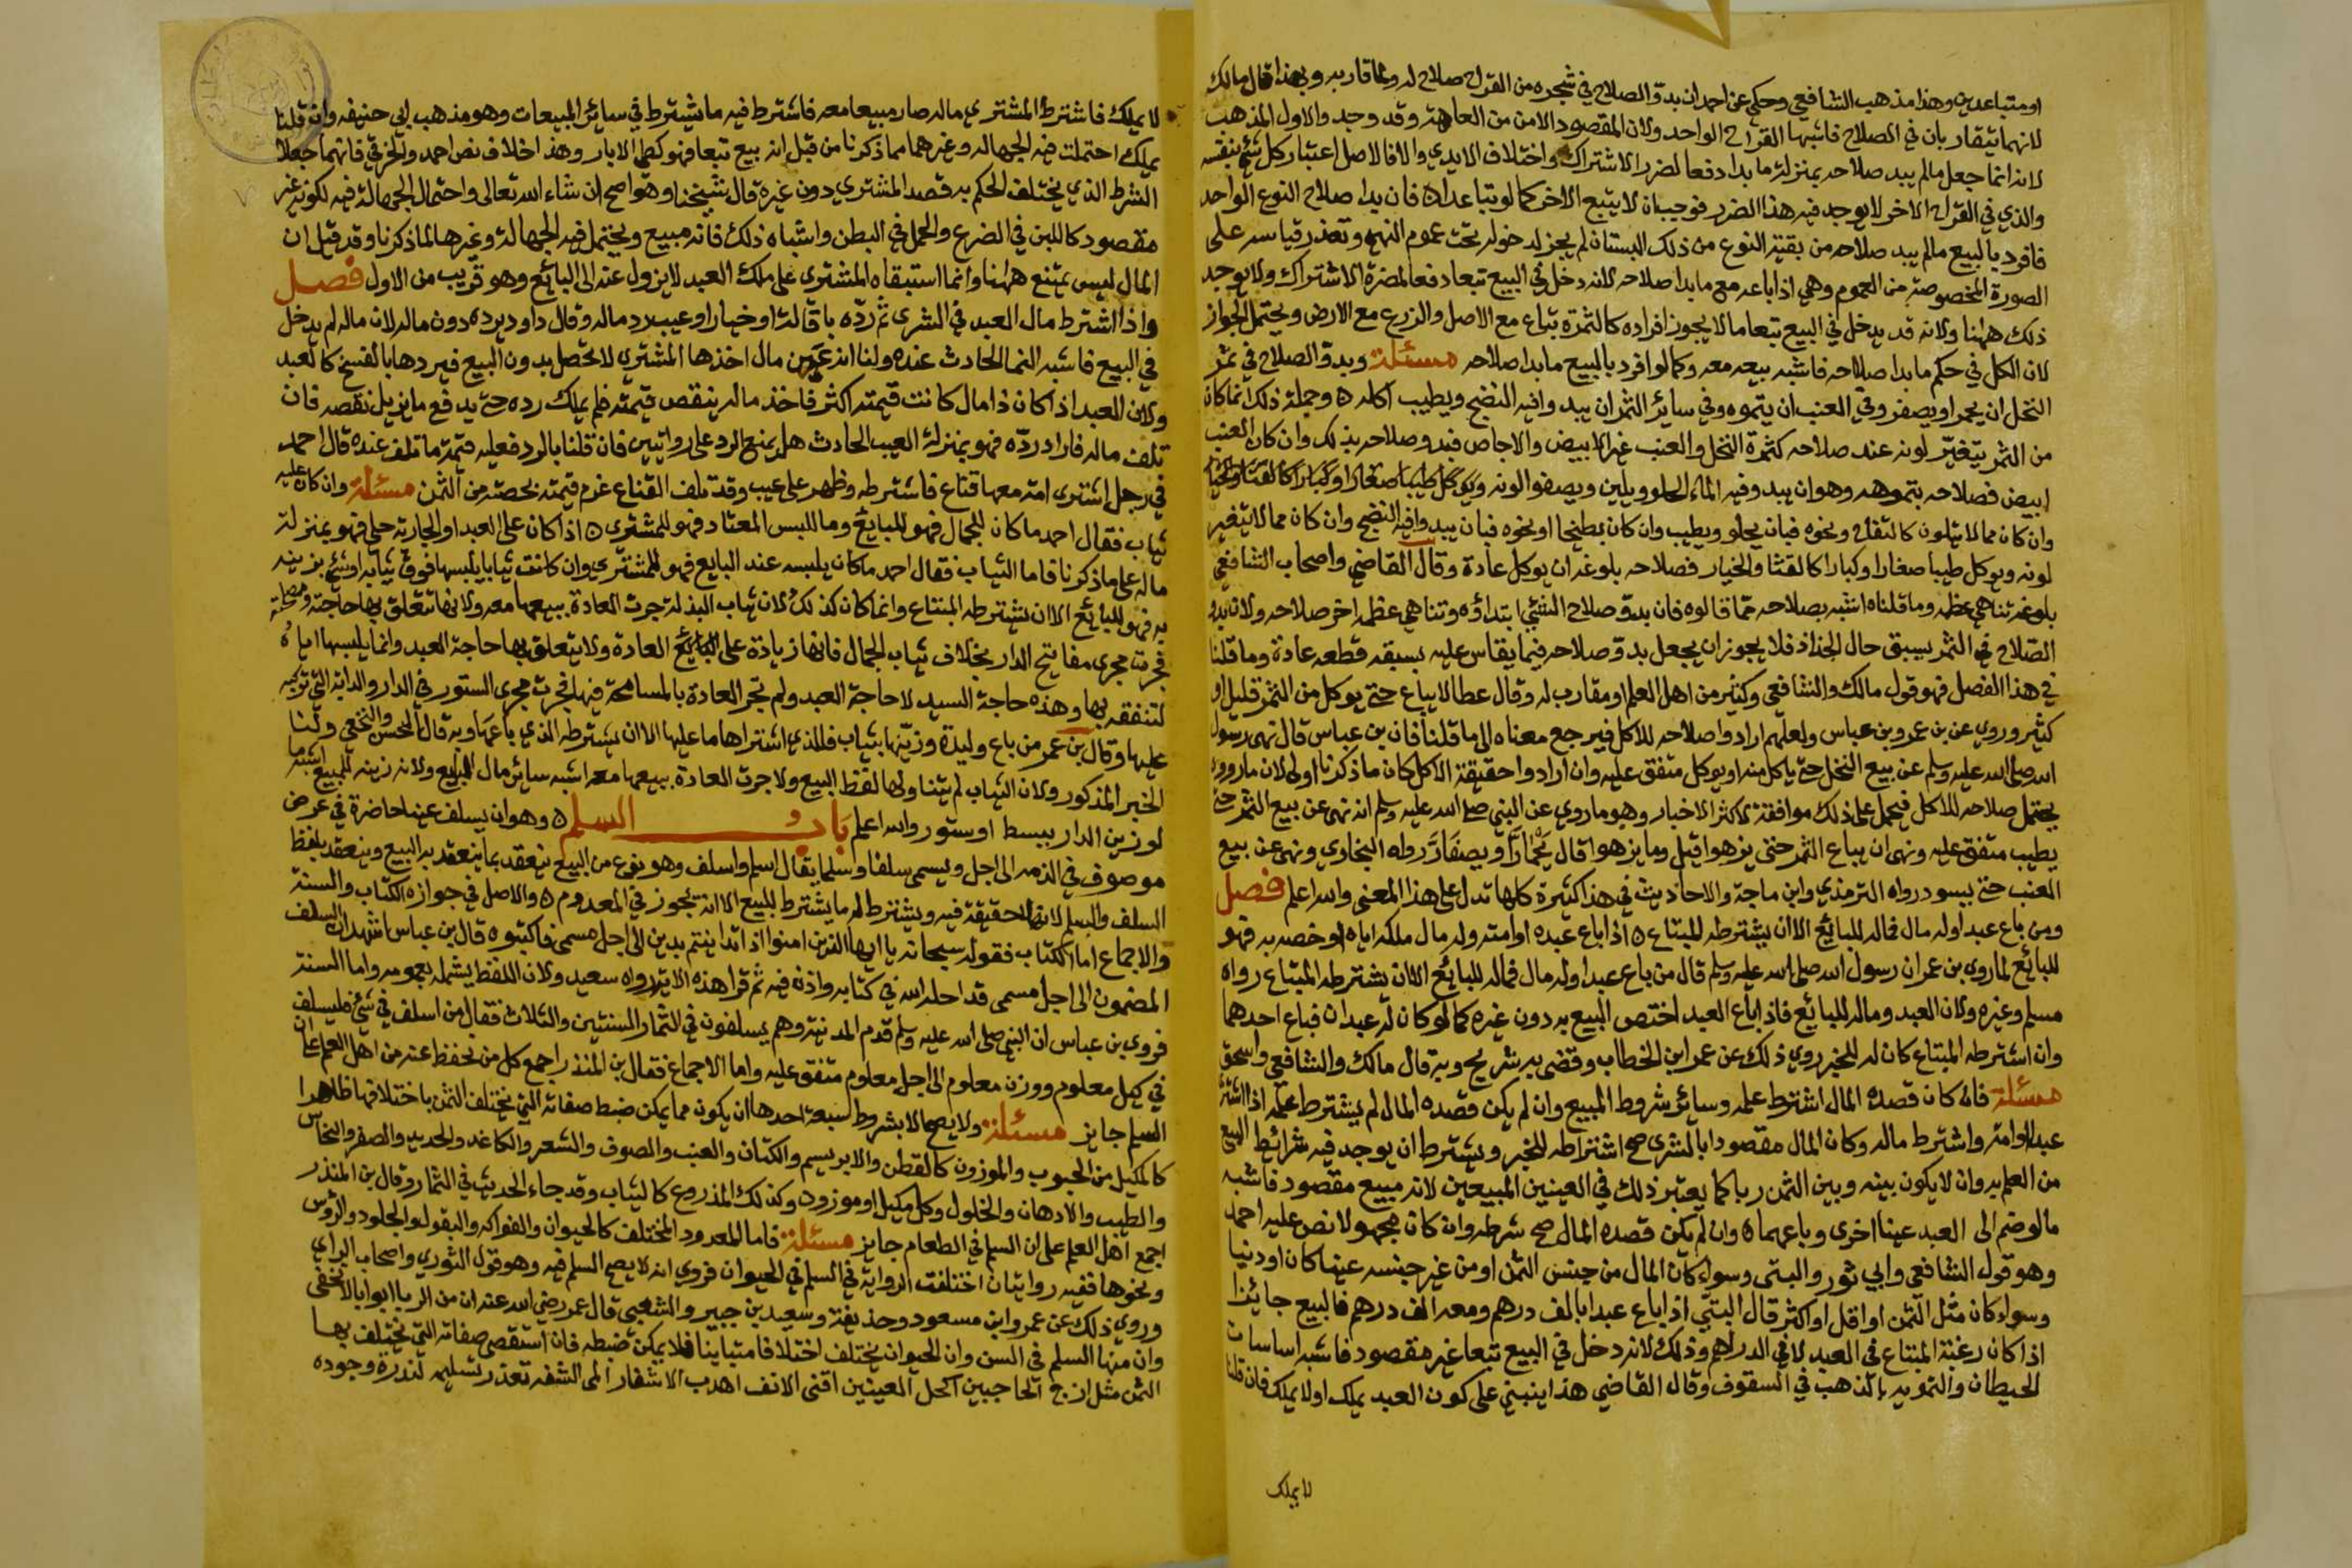 او متباعدين وهذا مذهب الشافعي وحكي عن احمد ان بدو الصلاح في شجره من القراح صلاح له ولما قاربه وبهذا قال مالك
لانهما يتقاربان في الصلاح فاشبها القراح الواحد ولان المقصود الامن من العاهة وقد وجد والاول المذهب
لانه انما جعل مالم يبد صلاحه بمنزلة ما بدا دفعا لضرر الاشتراك واختلاف الايدي والا فالاصل اعتبار كل شئ بنفسه
والذي في القراح الاخر لا يوجد فيه هذا الضرر فوجب ان لا يتبع الاخر كما لو تباعدا ه فان بدا صلاح النوع الواحد
فافرد بالبيع مالم يبد صلاحه من بقية النوع من ذلك البستان لم يجز لدخوله تحت عموم النهي وتعذر قياسه على
الصورة المخصوصة من العموم وهي اذا باعه مع ما بدا صلاحه لانه دخل في البيع تبعا دفعا لمضرة الاشتراك ولا يوجد
ذلك ههنا ولانه قد يدخل في البيع تبعا مالا يجوز افراده كالثمرة تباع مع الاصل والزرع مع الارض ويحتمل الجواز
لان الكل في حكم ما بدا صلاحه فاشبه بيعه معه وكما لو افرد بالبيع ما بدا صلاحه مسئلة وبدو الصلاح في ثمر
النخل ان يحمر او يصفر وفي العنب ان يتموه وفي سائر الثمر ان يبدو فيه النضج ويطيب اكله ه وجملة ذلك انما كان
من الثمر يتغير لونه عند صلاحه كثمرة النخل والعنب غير الابيض والاجاص فبدو صلاحه بذلك وان كان العنب
ابيض فصلاحه بتموهه وهو ان يبدو فيه الماء الحلو ويلين ويصفو لونه
وان كان مما لا يتلون كالتفاح ونحوه فبان يحلو ويطيب وان كان بطيخا او نحوه فبان يبدو فيه النضج وان كان مما لا يتغير
لونه ويوكل طيبا صغارا وكبارا كالقثا والخيار فصلاحه بلوغه ان يوكل عادة وقال القاضي واصحاب الشافعي
بلوغه تناهي عظمه وما قلناه اشبه بصلاحه مما قالوه فان بدو صلاح الشئ ابتداؤه وتناهي عظمه اخر صلاحه ولان بدو
الصلاح في الثمر يسبق حال الجذاذ فلا يجوز ان يجعل بدو صلاحه فيما يقاس عليه بسبقه قطعه عادة وما قلنا
في هذا الفصل فهو قول مالك والشافعي وكثير من اهل العلم او مقارب له وقال عطا لا يباع حتى يوكل من الثمر قليل او
كثير وروي عن بن عمر وبن عباس ولعلهم ارادوا صلاحه للاكل فيرجع معناه الى ما قلنا فان بن عباس قال نهى رسول
الله صلى الله عليه وسلم عن بيع النخل حتى ياكل منه او يوكل متفق عليه وان ارادوا حقيقة الاكل كان ما ذكرنا اولى لان ما رووه
يحتمل صلاحه للاكل فيحمل على ذلك موافقة لاكثر الاخبار وهو ما روي عن النبي صلى الله عليه وسلم انه نهى عن بيع الثمر حتى
يطيب متفق عليه ونهى ان يباع الثمر حتى يزهوا قيل وما يزهوا قال يحمار او يصفار رواه البخاري ونهى عن بيع
العنب حتى يسود رواه الترمذي وابن ماجة والاحاديث في هذا كثيرة كلها تدل على هذا المعنى والله اعلم فصل
ومن باع عبدا وله مال فماله للبائع الا ان يشترطه المبتاع ه اذا باع عبده او امته وله مال ملكه اياه او خصه به فهو
للبائع لما روى بن عمر ان رسول الله صلى الله عليه وسلم قال من باع عبدا وله مال فماله للبائع الا ان يشترطه المبتاع رواه
مسلم وغيره ولان العبد وماله للبائع فاذا باع العبد اختص البيع به دون غيره كما لو كان له عبدان فباع احدهما
وان اشترطه المبتاع كان له للخبر روي ذلك عن عمر ابن الخطاب وقضى به شريح وبه قال مالك والشافعي واسحق
مسئلة فان كان قصده المال اشترط علمه وسائر شروط المبيع وان لم يكن قصده المال لم يشترط علمه اذا اشترى
عبدا او امة واشترط ماله وكان المال مقصودا بالشرى صح اشتراطه للخبر ويشترط ان يوجد فيه شرائط البيع
من العلم به وان لا يكون بينه وبين الثمن ربا كما يعتبر ذلك في العينين المبيعين لانه مبيع مقصود فاشبه
مالو ضم الى العبد عينا اخرى وباعهما ه وان لم يكن قصده المال صح شرطه وان كان مجهولا نص عليه احمد
وهو قول الشافعي وابي ثور والبتى وسواء كان المال من جنس الثمن او من غير جنسه عينا كان او دينا
وسواء كان مثل الثمن او اقل او اكثر قال البتي اذا باع عبدا بالف درهم ومعه الف درهم فالبيع جائز اذا
اذا كان رغبة المبتاع في العبد لا في الدراهم وذلك لانه دخل في البيع تبعا غير مقصود فاشبه اساسات
الحيطان والتمويه بالذهب في السقوف وقال القاضي هذا ينبني على كون العبد يملك اولا يملك فان قلنا
لا يملك
لا يملك فاشترط المشتري ماله صار مبيعا معه فاشترط فيه ما يشترط في سائر المبيعات وهو مذهب ابي حنيفه وان قلنا
يملك احتملت فيه الجهاله وغيرهما مما ذكرنا من قبل انه بيع تبعا فهو كطي الابار وهذا خلاف نص احمد والخرقي فانهما جعلا
الشرط الذي يختلف الحكم به قصد المشتري دون غيره قال شيخنا وهو اصح ان شاء الله تعالى واحتمال الجهالة فيه لكونه غير
مقصود كاللبن في الضرع والحمل في البطن واشباه ذلك فانه مبيع ويحتمل فيه الجهالة وغيرها لما ذكرنا وقد قيل ان
المال ليس بمبيع ههنا وانما استبقاه المشترى على ملك العبد لا يزول عنه الى البائع وهو قريب من الاول فصل
واذا اشترط مال العبد في الشرى ثم رده باقالة او خيار او عيب رد ماله وقال داود يرده دون ماله لان ماله لم يدخل
في البيع فاشبه النما الحادث عنده ولنا انه عين مال اخذها المشترى لا تحصل بدون البيع فيردها بالفسخ كالعبد
ولان العبد اذا كان ذا مال كانت قيمته اكثر فاخذ ماله ينقص قيمته فلم يملك رده حتى يدفع ما يزيل نقصه فان
تلف ماله فاراد رده فهو بمنزلة العيب الحادث هل يمنع الرد على روايتين فان قلنا بالرد فعليه قيمة ما تلف عنده قال احمد
في رجل اشترى امة معها قناع فاشترطه وظهر على عيب وقد تلف القناع غرم قيمته بحصته من الثمن مسئلة وان كان عليه
ثياب فقال احمد ما كان للجمال فهو للبايع وما للبس المعتاد فهو للمشترى ه اذا كان على العبد او الجارية حلي فهو بمنزلة
ماله على ما ذكرنا فاما الثياب فقال احمد ما كان يلبسه عند البايع فهو للمشتري وان كانت ثيابا يلبسها فوق ثيابه او شئ يزينه
به فهو للبايع الا ان يشترطه المبتاع وانما كان كذلك لان ثياب البذلة جرت العادة ببيعها معه ولانها تتعلق بها حاجته ومصلحته
فجرت مجرى مفاتيح الدار بخلاف ثياب الجمال فانها زيادة على العادة ولا يتعلق بها حاجة العبد وانما يلبسها اياه
لتنفقه بها وهذه حاجة السيد لا حاجة العبد ولم تجر العادة بالمسامحة فيها فجرت مجرى الستور في الدار والدابة التي تركبه
عليها وقال بن عمر من باع وليدة وزينها بثياب فللذي اشتراها ما عليها الا ان يشترطه الذي باعها وبه قال الحسن والنخعي ولنا
الخبر المذكور ولان الثياب لم يتناولها لفظ البيع ولا جرت العادة ببيعها معه اشبه سائر مال البايع ولانه زينة للمبيع اشبه ما
لو زين الدار ببسط او ستور والله اعلم باب السلم ه وهو ان يسلف عينا حاضرة في عوض
موصوف في الذمه الى اجل ويسمى سلفا وسلما يقال اسلم واسلف وهو نوع من البيع ينعقد بما ينعقد به البيع وينعقد بلفظ
السلف والسلم لانها حقيقة فيه ويشترط له ما يشترط للبيع الا انه يجوز في المعدوم ه والاصل في جوازه الكتاب والسنة
والاجماع اما الكتاب فقوله سبحانه يا ايها الذين امنوا اذا تداينتم بدين الى اجل مسمى فاكتبوه قال بن عباس اشهد ان السلف
المضمون الى اجل مسمى قد احله الله في كتابه واذن فيه ثم قرا هذه الاية رواه سعيد ولان اللفظ يشمله بعمومه واما السنة
فروى بن عباس ان النبي صلى الله عليه وسلم قدم المدينة وهم يسلفون في الثمار السنتين والثلاث فقال من اسلف في شئ فليسلف
في كيل معلوم ووزن معلوم الى اجل معلوم متفق عليه واما الاجماع فقال بن المنذر اجمع كل من نحفظ عنه من اهل العلم على ان
السلم جايز مسئلة ولا يصح الا بشروط سبعة احدها ان يكون مما يمكن ضبط صفاته التي يختلف الثمن باختلافها ظاهرا
كالمكيل من الحبوب والموزون كالقطن والابريسم والكتان والعنب والصوف والشعر والكاغد والحديد والصفر والنحاس
والطيب والادهان والخلول وكل مكيل او موزون وكذلك المذروع كالثياب وقد جاء الحديث في الثمار وقال بن المنذر
اجمع اهل العلم على ان السلم في الطعام جايز مسئلة فاما المعدود المختلف كالحيوان والفواكه والبقول والجلود والرؤس
ونحوها ففيه روايتان اختلفت الرواية في السلم في الحيوان فروي انه لا يصح السلم فيه وهو قول الثوري واصحاب الراي
وروي ذلك عن عمر وابن مسعود وحذيفة وسعيد بن جبير والشعبي قال عمر رضي الله عنه ان من الربا ابوابا لا تخفى
وان منها السلم في السن وان الحيوان يختلف اختلافا متباينا فلا يمكن ضبطه فان استقصى صفاته التي يختلف بها
الثمن مثل ازج الحاجبين اكحل العينين اقنى الانف اهدب الاشفار المى الشفه تعذر تسليمه لندرة وجوده